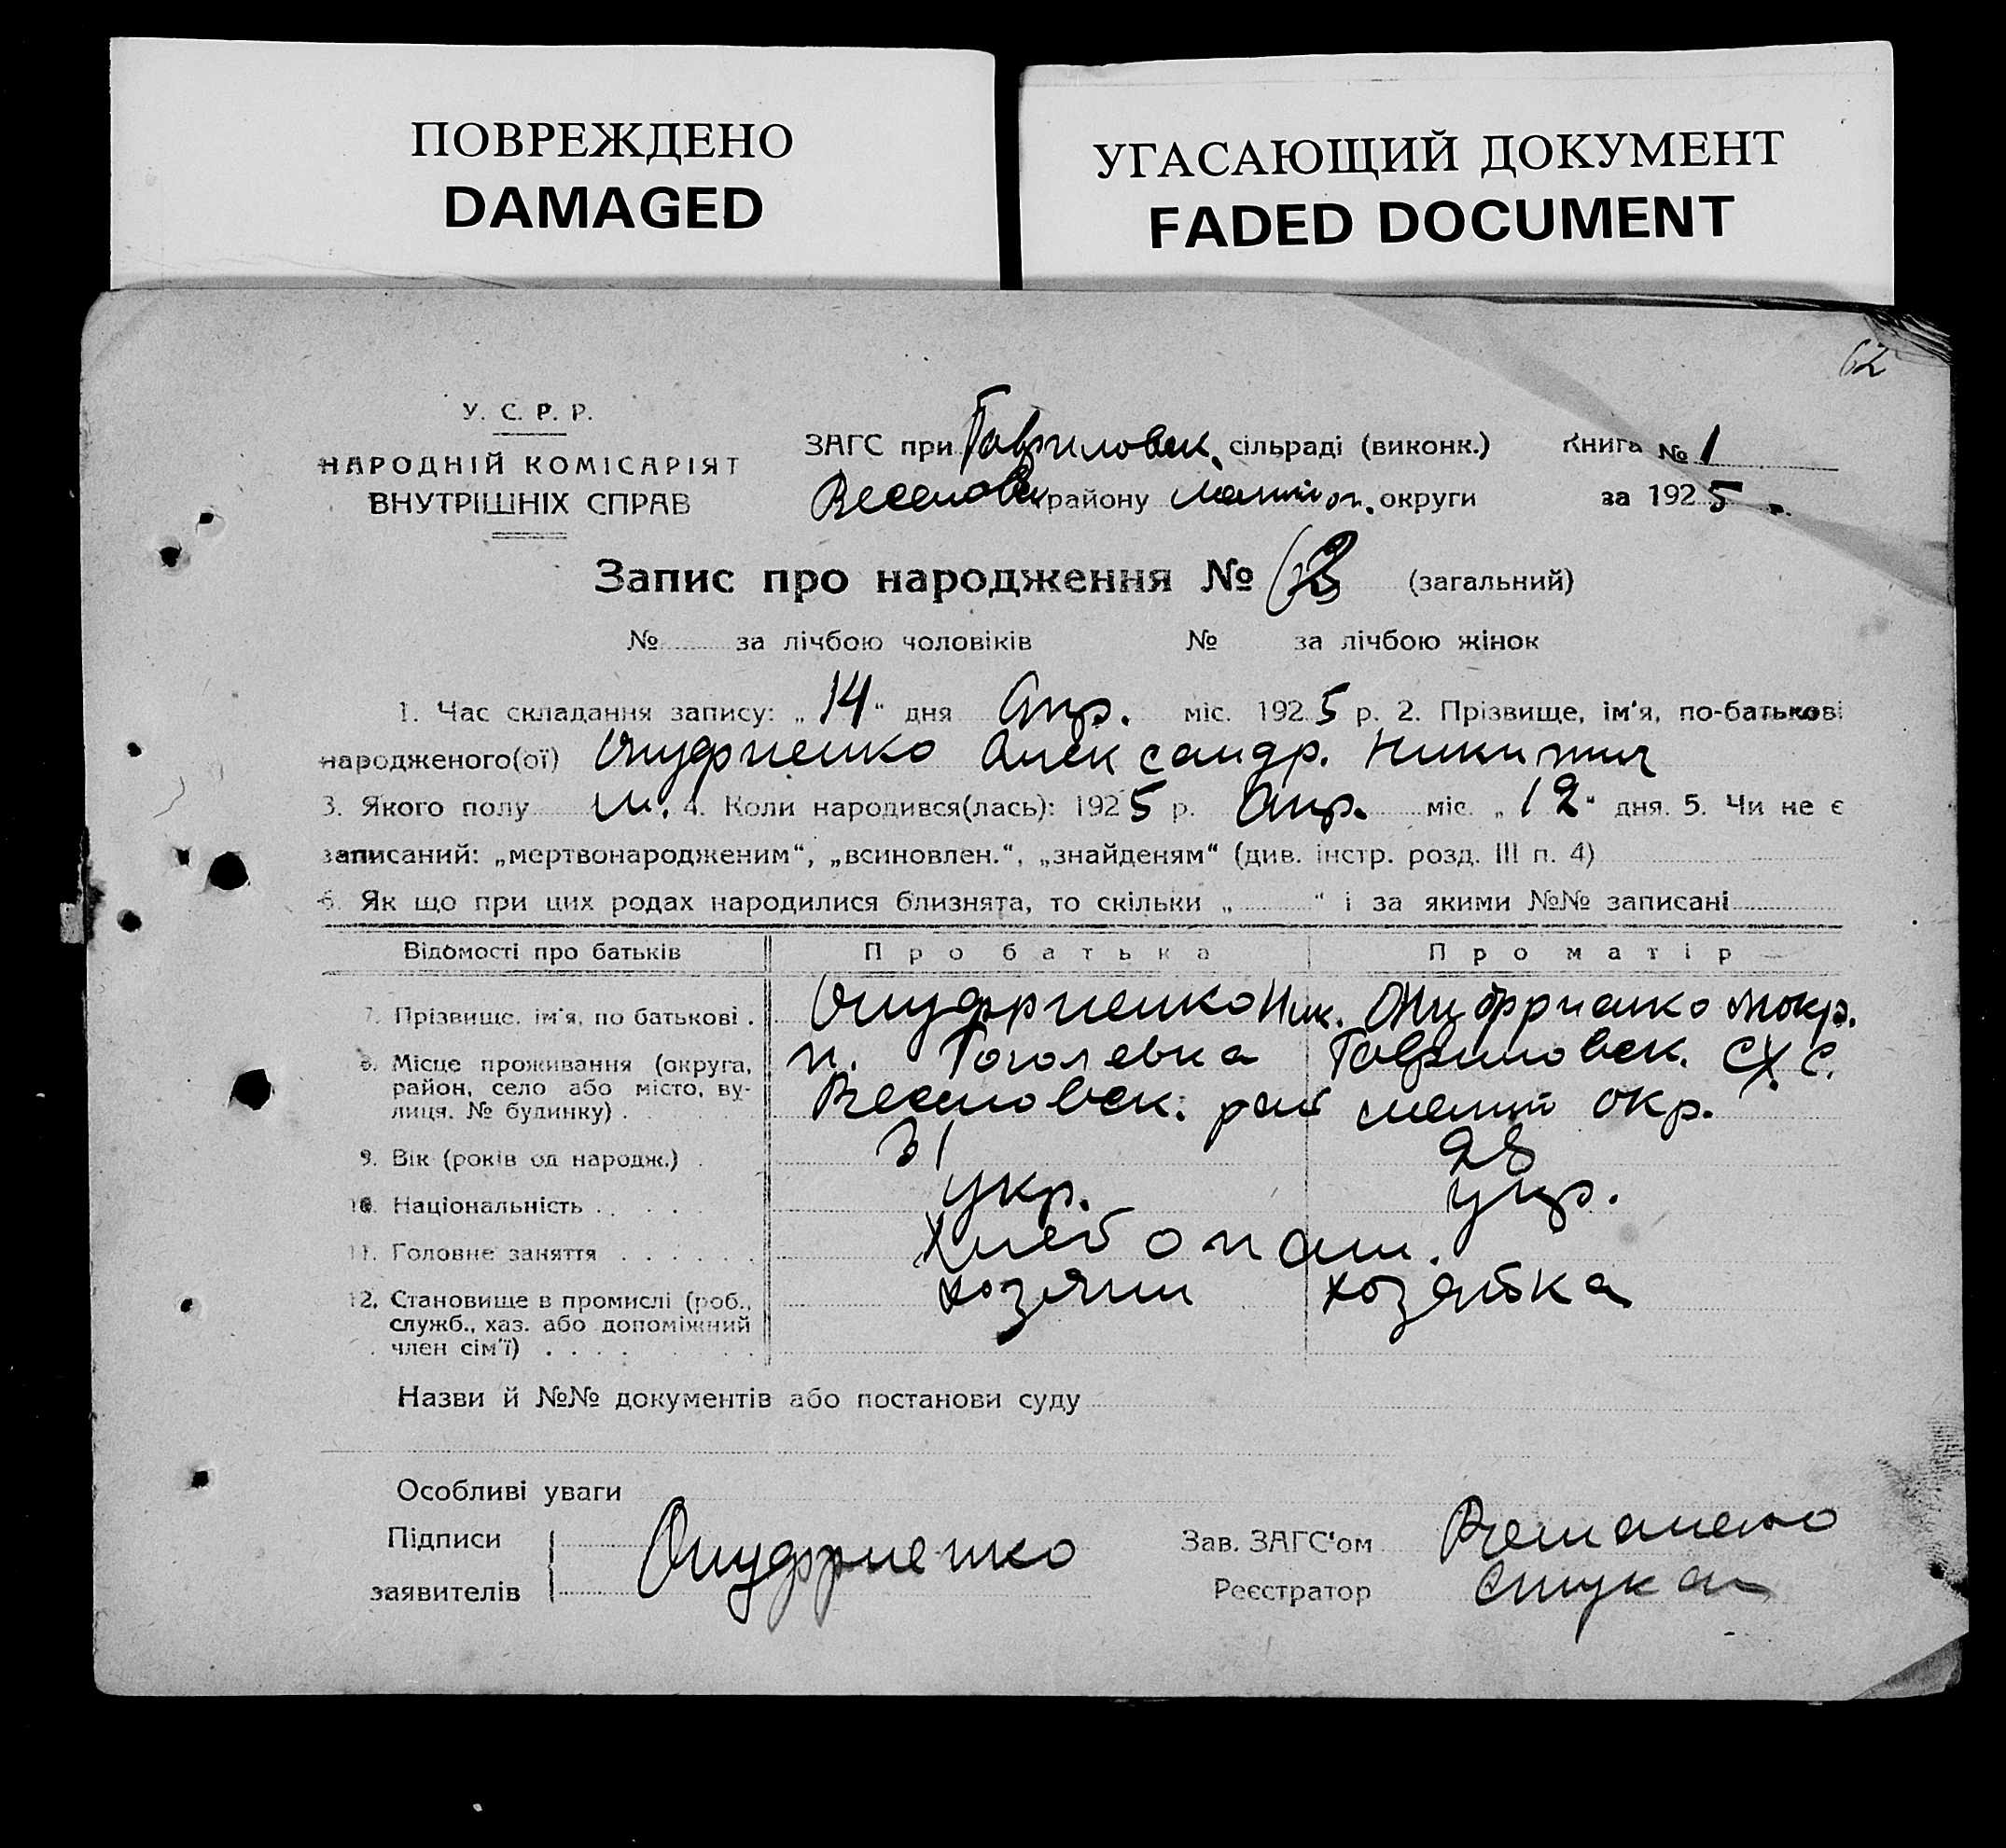 ПОВРЕЖДЕНО
DAMAGED
УГАСАЮЩИЙ ДОКУМЕНТ
FADED DOCUMENT
62
У. С. Р. Р.
НАРОДНІЙ КОМІСАРІЯТ
ВНУТРІШНІХ СПРАВ
ЗАГС при Гавриловск. сільраді (виконк.) Книга № 1
Веселовск району мелит ок. округи за 1925 р.
Запис про народження № (загальний)
№ за лічбою чоловіків № за лічбою жінок
1. Час складання запису: „14“ дня Апр. міс. 1925 р. 2. Прізвище, ім'я, по-батькові
народженого(ої) Онуфриенко Александр. Никитич
3. Якого полу м. 4. Коли народився(лась): 1925 р. Апр. міс. „12“ дня. 5. Чи не є
записаний: „мертвонародженим“, „всиновлен.“, „знайденям“ (див. інстр. розд. III п. 4)
6. Як що при цих родах народилися близнята, то скільки „ “ і за якими №№ записані
Відомості про батьків Про батька Про матір
7. Прізвище, ім'я, по батькові . Онуфриенко Ник. Онуфриенко Мокр.
8. Місце проживання (округа, п. Гоголевка Гавриловск. с/с.
район, село або місто, ву- Веселовск. рай мелит окр.
лиця, № будинку) .
9. Вік (років од народж.) . 31 28
10. Національність . . . . . укр. укр.
11. Головне заняття . . . . . . Хлебопаш.
12. Становище в промислі (роб., хозяин хозяйка
служб., хаз. або допоміжний
член сім'ї) . . . . . . .
Назви й №№ документів або постанови суду
Особливі уваги
Підписи Онуфриенко Зав. ЗАГС'ом
заявителів Реєстратор